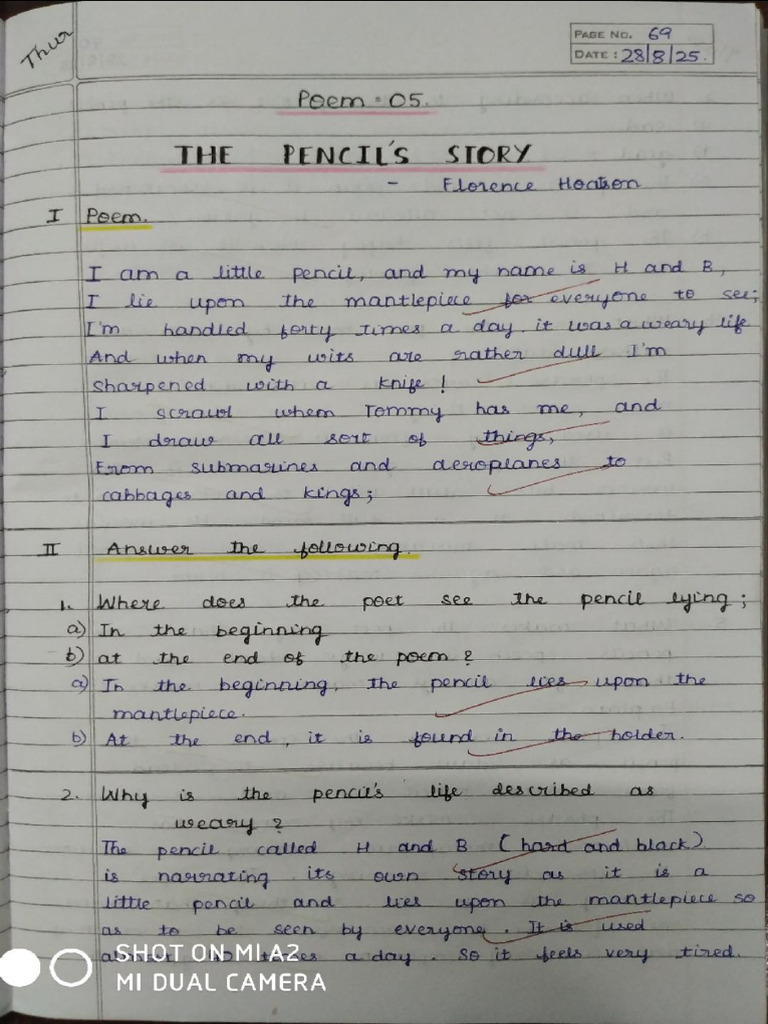 Thur
PAGE NO. 69
DATE: 28/8/25.
Poem - 05.
THE PENCIL'S STORY
- Florence Hoatson
I Poem.
I am a little pencil, and my name is H and B,
I lie upon the mantlepiece for everyone to see;
I'm handled forty times a day. it was a weary life
And when my wits are rather dull I'm
sharpened with a knife!
I scrawl when Tommy has me, and
I draw all sort of things,
From submarines and aeroplanes to
cabbages and kings;
II Answer the following.
1. Where does the poet see the pencil lying;
a) In the beginning
b) at the end of the poem?
a) In the beginning, the pencil lies upon the
mantlepiece.
b) At the end, it is found in the holder.
2. Why is the pencil's life described as
weary?
The pencil called H and B (hard and black)
is narrating its own story as it is a
little pencil and lies upon the mantlepiece so
as to be seen by everyone. It is used
a day. So it feels very tired.
SHOT ON MI A2
MI DUAL CAMERA